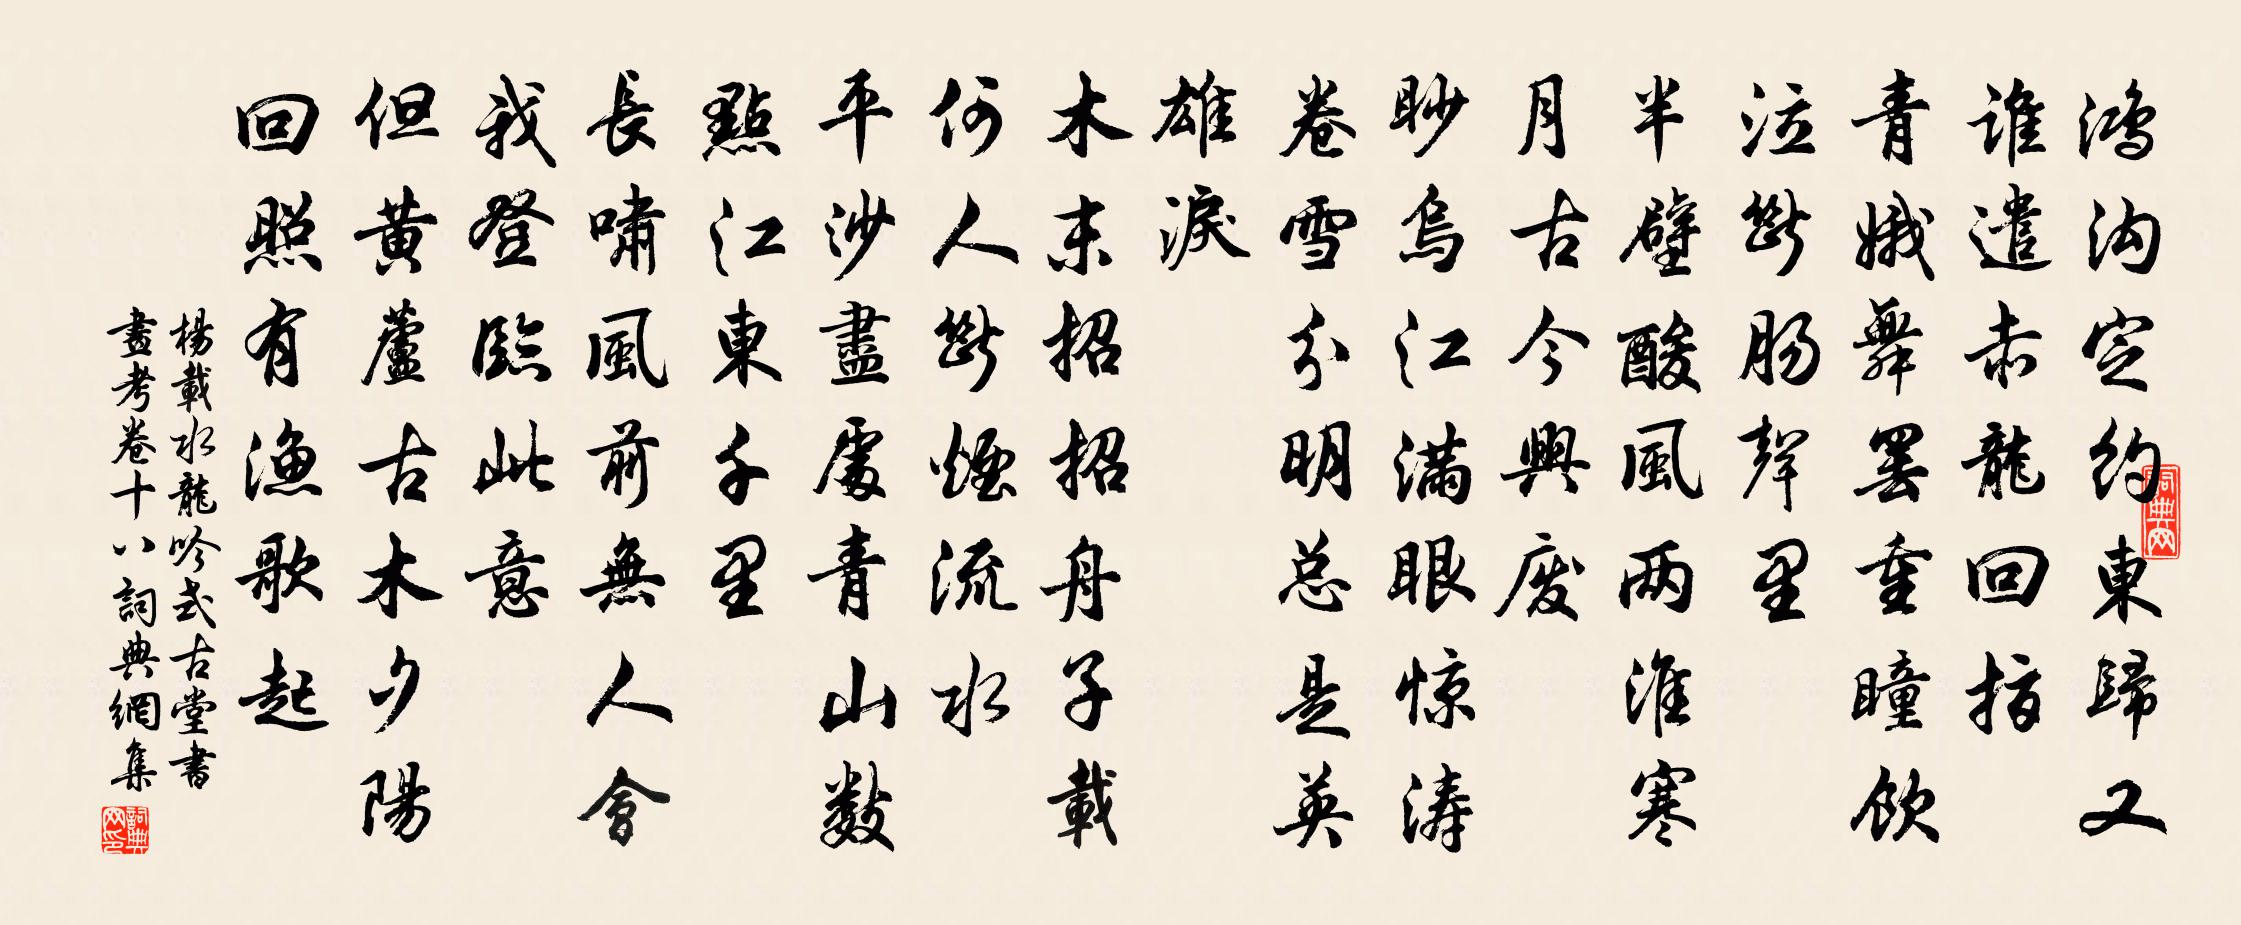 鴻沟定約東歸又
誰遣赤龍回指
青娥舞罢重瞳飲
泣斷肠聲里
半壁酸風两淮寒
月古今興废
眇烏江满眼惊涛
卷雪分明总是英
雄淚
木末招招舟子載
何人斷煙流水
平沙盡處青山數
點江東千里
長嘯風前無人會
我登臨此意
但黄蘆古木夕陽
回照有渔歌起
楊載水龍吟式古堂書
畫考卷十八詞典網集
詞典网
詞典网印